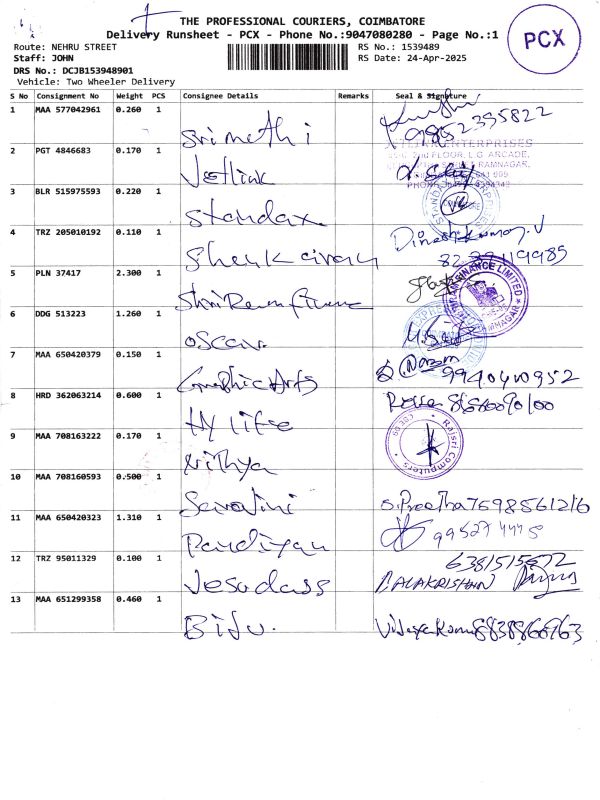 THE PROFESSIONAL COURIERS, COIMBATORE
Delivery Runsheet - PCX - Phone No.:9047080280 - Page No.:1
PCX
Route: NEHRU STREET
RS No.: 1539489
Staff: JOHN
RS Date: 24-Apr-2025
DRS No.: DCJB153948901
Vehicle: Two Wheeler Delivery
S No Consignment No Weight PCS Consignee Details Remarks Seal & Signature
1 MAA 577042961 0.260 1 Srimethi
2 PGT 4846683 0.170 1 Jetlink
3 BLR 515975593 0.220 1 Standax
4 TRZ 205010192 0.110 1 Dinesh Kumar.V
5 PLN 37417 2.300 1 Shri Ram finance
6 DDG 513223 1.260 1 oscar
7 MAA 650420379 0.150 1 Graphic Arts 9940410952
8 HRD 362063214 0.600 1 Hy life
9 MAA 708163222 0.170 1 Nithya Rajsri Computers
10 MAA 708160593 0.500 1 Sarojini S.Preetha 7598561216
11 MAA 650420323 1.310 1 Pandiyan
12 TRZ 95011329 0.100 1 Jesudass BALAKRISHNAN
13 MAA 651299358 0.460 1 Biju.